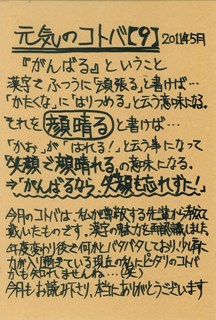 元気のコトバ【9】 2011年5月
『がんばる』ということ
漢字で ふつうに「頑張る」と書けば…
「かたくな」に「はりつめる」と云う意味になる。
それを 顔晴る と書けば…
「かお」が「はれる!」と云う事になって
"笑顔で晴れる"の意味になる。
→『がんばるなら、笑顔を忘れずに!』
今月のコトバは、私が尊敬する先輩から教えて
戴いたものです。漢字の魅力を再認識しました。
年度変わり後で何かとバタバタしており、
力が入り過ぎている現在の私にピタリのコトバ
かも知れませんね…(笑)
今月もお読み下さり、本当にありがとうございます